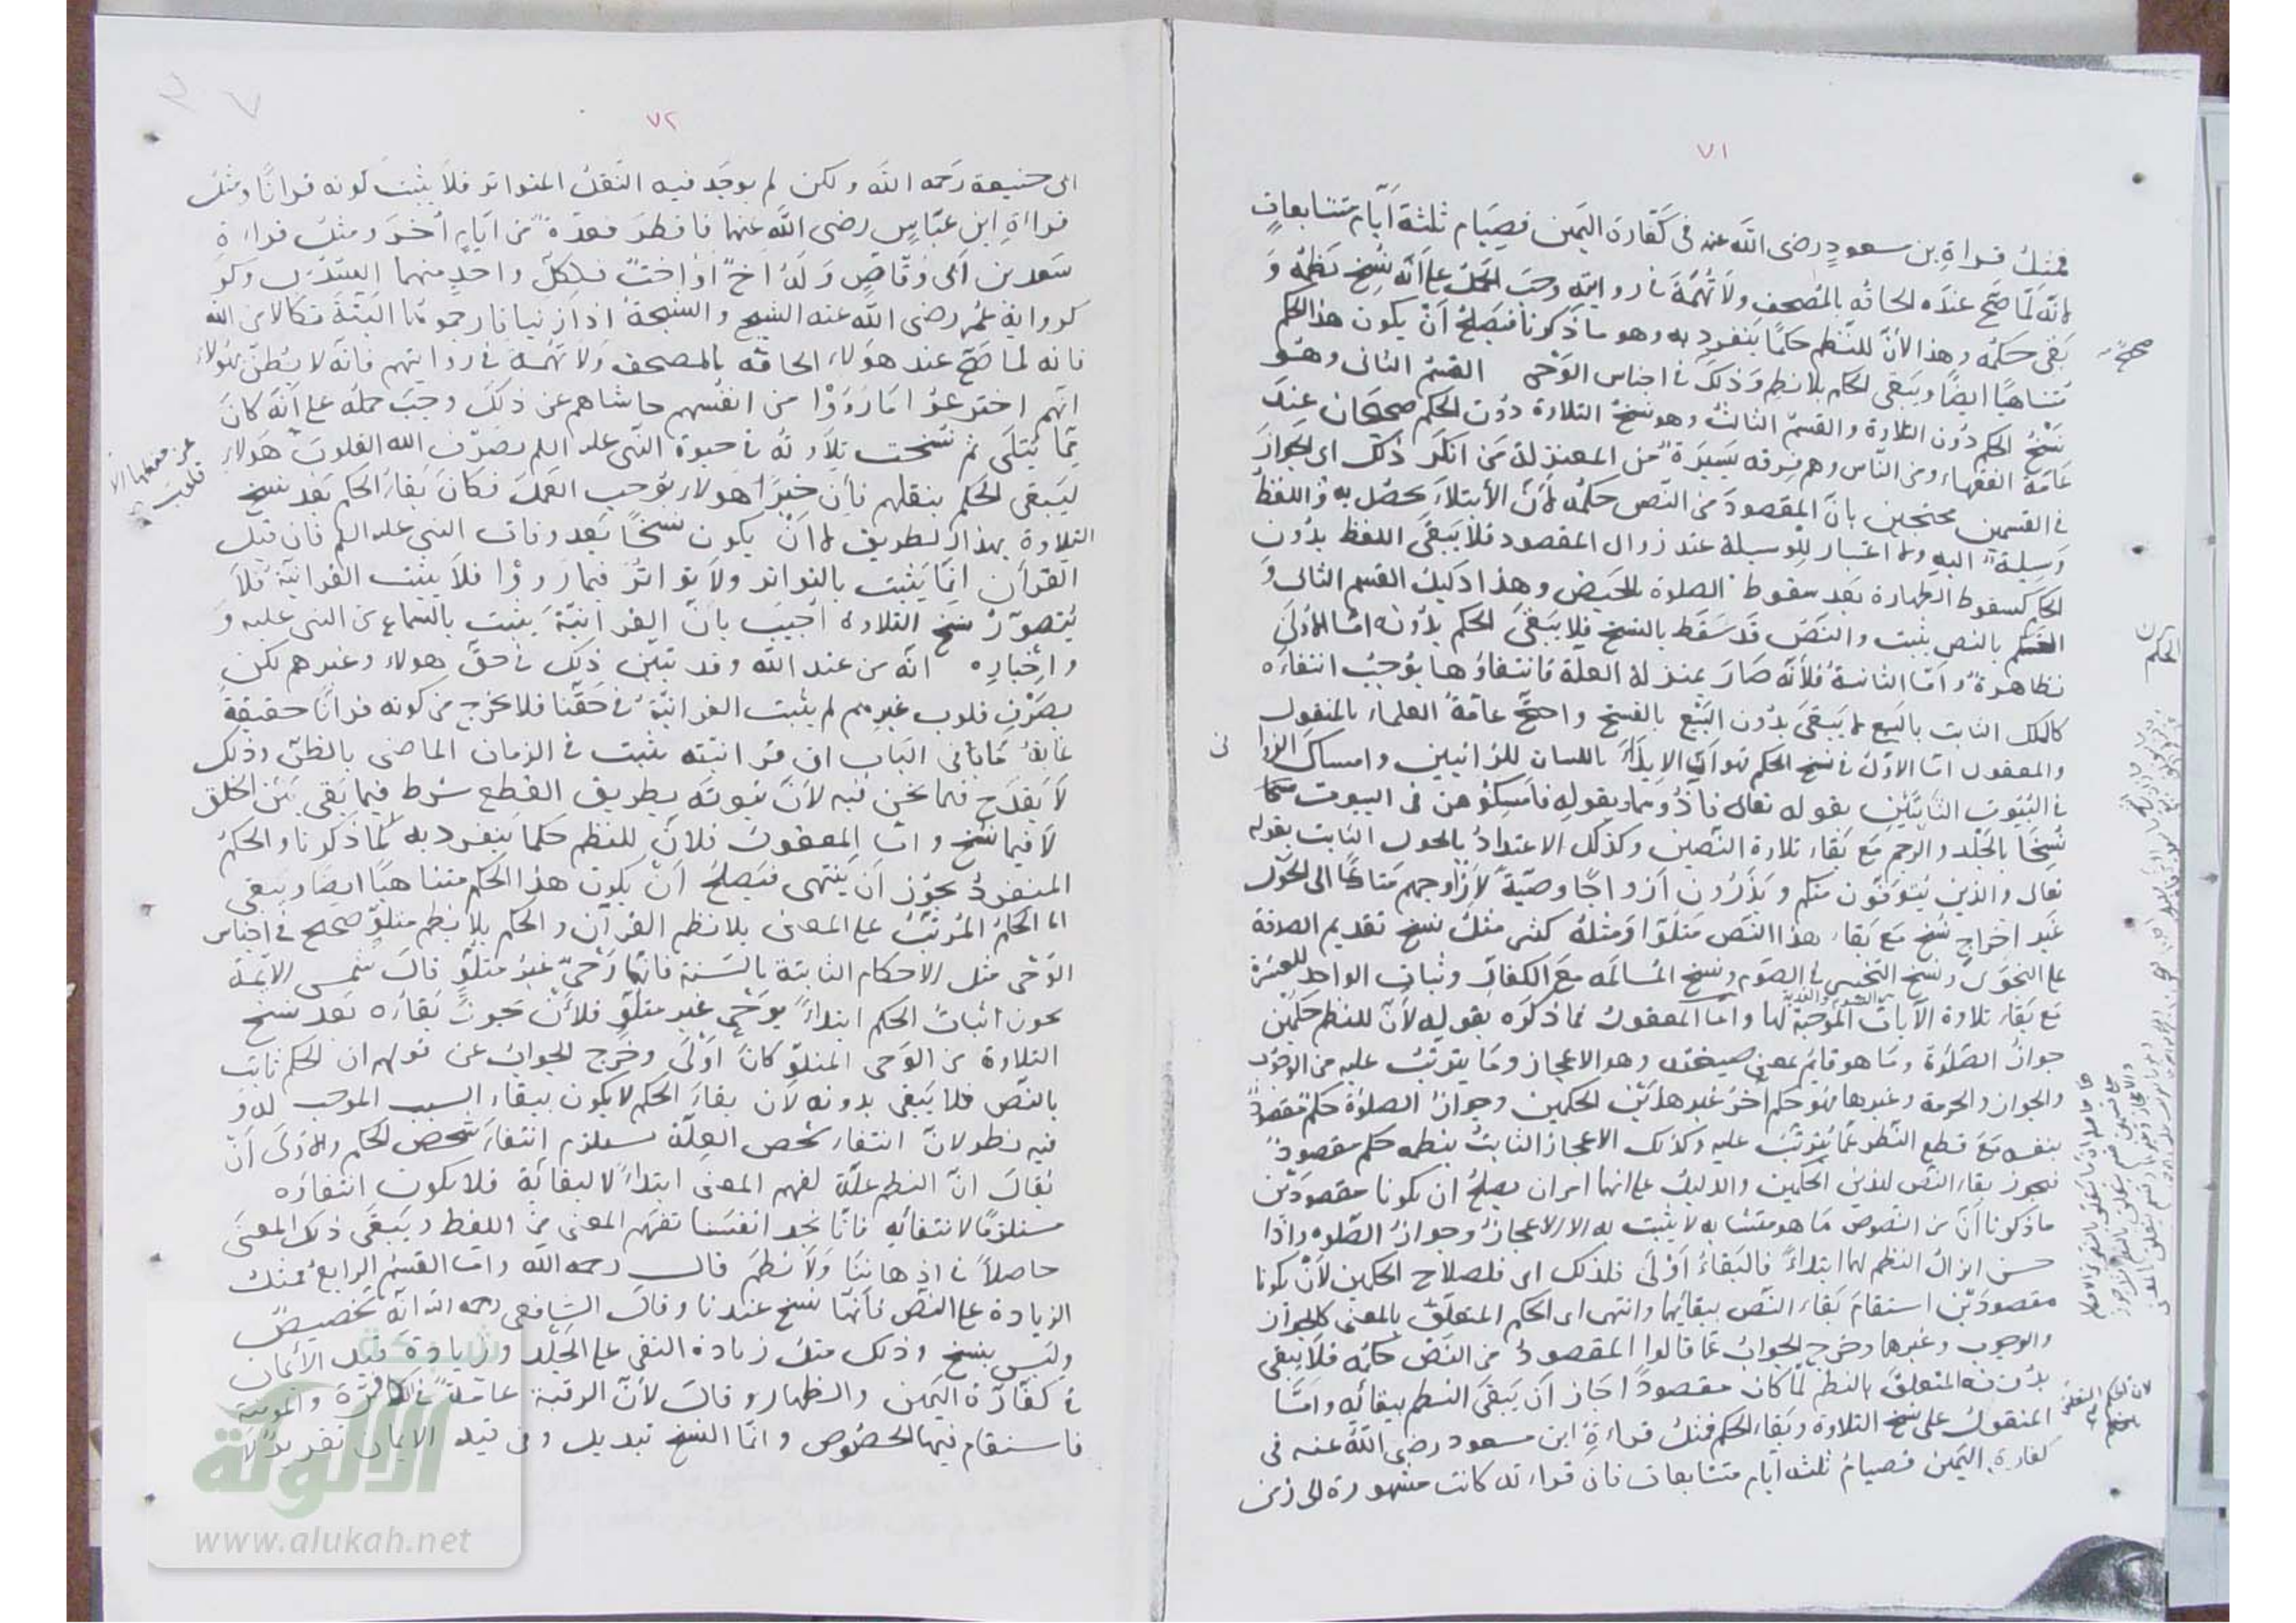 ٧١
فمثل قراءةِ بن سعودٍ رضى الله عنه فى كَفّارة اليَمين فصِيَام ثلثة اَيّام متتابعاتٍ
لانّه لَمّا صَحّ عنده الحاقه بالمُصحف ولاَ تُهَمَةَ فى روايته وجب الحَمْلُ على اَنّه نُسِخ نَظمُه وَ
بَقى حكمُه وهذا لاَنّ للنّظم حكمًا يَنفرد به وهو ما ذَكرنا فيَصلحُ اَنْ يكون هذا الحكم
مُتناهيًا ايضًا ويَبقى الحكم بلا نظم وَذلكَ فى اجناس الوَحْى القسمُ الثانى وهُو
نَسْخُ الحكم دُون التلاوة والقسمُ الثالثُ وهو نسخُ التلاوة دوُن الحكم صحيحَان عِندَ
عَامّة الفقهاءِ ومن النّاس وهم فِرقه يَسيَرَة مّن المعتزلة مَن انكَرَ ذلك اى الجوازَ
فى القسمين محتجين بانّ المقصودَ من النّص حكمُه لاَنّ الأبتلاَءَ يحصُل به واللفظُ
وَسِيلة اليه ولا اعتبار للوسيلة عند زوال المقصود فلا يَبقَى اللفظ بدُون
الحكم كسقوط الطهارة بَعد سقوط الصلوة بالحَيض وهذا دَليلُ القسم الثانى وَ
الحكم بالنص يثبت والنَصّ قَد سَقَط بالنسخ فلا يَبقَى الحكم بدُونه امّا الاُولَى
فظاهرة وامّا الثانيةُ فلأنّه صَارَ بمنزلة العلة فانتفاؤُها يوُجبُ انتفاءَه
كالملك الثابت بالبَيع لا يَبقىَ بدُون البَيْع بالفسخ واحتجّ عامّةُ العلماءِ بالمنقول
والمعقول امّا الاَوّلُ فى نسخ الحكم فهو اَنّ الايذَاءَ باللسان للزانيين وامساكَ الزوانى
فى البُيُوت الثابتَيْنِ بقوله تعالى فآذُوهما وبقولِهِ فاَمسِكُوهنّ فى البيوت
نُسِخَا بالجَلْد والرجم مَع بَقاءِ تلاوة النّصين وكذلك الاعتدادُ بالحول الثابت بقوله
تعالى والذين يُتوَفّون منكم ويَذَرُون اَزواجًا وصيّةً لأزواجهم مَتَاعًا الى الحَول
غَير اِخراجٍ نُسِخ مَع بَقاءِ هذا النّصَ مَتلُوّا ومثلهُ كثير مثلُ نسخ تقديم الصدقة
على النجوَى ونسخ التخيير فى الصَوم ونسخ المُسالمه مَعَ الكفّار وثبات الواحد للعشرة
مَع بَقاءِ تلاوة الآيات الموجبة لها وامّا المعقولُ فما ذكرَه بقوله لأنّ للنظم حكمَيْن
جوازُ الصَلوة وما هو قايم بمعنى صيغته وهو الاعجاز وما يترتبُ عليه من الوجوب
والجواز والحرمة وغيرها فهُو حكم آخرُ غير هذين الحكمين وجوازُ الصلوة حكم مقصودٌ
بنفسه مَعَ قطع النّظر عمّا يُترتّبُ عليه وكذلك الاعجاز الثابتُ بنظمه حكم مقصودٌ
فيجوز بقاءُ النّص لهذين الحكمين والدليلُ على انّهما امران يصلحُ ان يكونا مقصودَيْن
ما ذكرنا اَنّ من النّصوص مَا هو متشابه لا يثبت به الا الاعجازُ وجوازُ الصّلوه واذا
حسن انزالُ النظم لهما ابتداءً فالبَقاءُ اَوْلى فلذلك اى فلصلاح الحكمين لأنْ يكونا
مقصودَيْن استقامَ بَقاءَ النّص ببقائهما وانتهى اى الحكم المتعلّقُ بالمعنى كالجواز
والوجوب وغيرها وخرج الجوابُ عمّا قالوا المقصودُ من النّصَ حكمُه فلا يبقى
بدُونه المتعلقَ بالنظم لَمّا كان مقصودًا جَاز اَن يَبقىَ النظم ببقائه وامَّا
المنقولُ على نسخ التلاوة وبَقاءِ الحكم فمثل قراءةِ ابن مسعود رضى الله عنه فى
كفارة اليَمين فصيامُ ثلثه اَيّام متتابعات فانّ قراءته كانت مشهورة الى زمن
صح
الحكم
نى
٧٢
ابى حنيفة رَحمه اللّه ولكن لم يوجَد فيه النّقلُ المتواتر فلاَ يثبتُ كونه قرانًا ومثلُ
قراءةِ ابن عبّاسٍ رضى اللّه عنهما فافطرَ فعدّة مّن اَيّامٍ اُخَرَ ومثلُ قراءةِ
سَعد بن اَبى وَقّاصٍ وَلَهُ اَخٌ اوْ اختٌ فلِكلّ واحدٍ منهما السّدُس وكو
كروايةِ عُمر رضى اللّه عنه الشيخ والشيخةُ اذا زنيا فارجموهما البَتّةَ نكالا من الله
فانه لما صَحّ عند هؤلاءِ الحاقه بالمصحف ولا تُهَمَةَ فى روايتهم فانه لا يُظنّ بهؤلاءِ
انّهم اخترعوُا مَا رَوَوْا من انفُسهم حاشاهم عن ذلكَ وجَبَ حملُه على اَنّهَ كانَ
مِمّا يُتلَى ثم نُسِخت تِلاوته فى حيوة النّبى عليه السلم بصَرْف الله القلوبَ هَولاءِ
ليَبقى الحُكم بنقلهم فاِنّ خبرَ هولاءِ يوُجب العَمَل فكانَ بَقاءُ الحكم بَعد نسخ
التلاوة بهذا الطريق لا اَنْ يكون نسخًا بَعد وفات النبى عليه السلم فان قيل
القرآن انّما يَثبت بالتواتر ولاَ تواتُرَ فيما رَووْا فلاَ يثبت القرانيّة فلاَ
يُتصوّرُ نسخ التلاوة اُجيبَ بانّ القرانيّةَ يثبت بالسّماع من النبى عليه وَ
واِخباره انّه من عند اللّه وقد تبيّن ذلك فى حقّ هولاءِ وغيرهم لكن
بصَرْف قلوب غيرِهم لم يثبت القرانيّة فى حَقّنا فلا يخرج من كونه قرانًا حقيقةً
غايةُ مَا فى الباب ان قرانيّته يثبت فى الزمان الماضى بالظنّ وذلك
لاَ يَقدَح فيما نحن فيه لاَنّ ثبوتَه بطريق القطع شرط فيما بَقى بَيْن الخلق
لاَ فيما نُسِخ وامّا المعقولُ فلاَنّ للنظم حكمًا يَنفرد به لما ذكرنا والحكمُ
المنفردُ يجوُز اَن يَنتهى فيَصلحُ اَنْ يكون هذا الحكم متناهيًا ايضًا ويبقى
امّا الحكمُ المُرتّبُ على المعنى بلا نظم القرآن والحكم بلا نظم متلوّ صحيح فى اجناس
الوَحْى مثل الاحكام الثابتة بالسّنة فانّها وَحْىٌ غيرُ متلُوٍّ قالَ شمس الائمة
يجوز اثباتُ الحكم ابتداءً بوَحْىٍ غير متلُوّ فلأَنْ يجوز بَقاؤُه بَعد نسخ
التلاوة من الوَحى المتلوّ كانَ اَوْلىَ وخَرَج الجوابُ عن قولهم ان الحكم ثابت
بالنّص فلا يَبقى بدونه لاَن بقاءَ الحكم لا يكون ببقاءِ السبب الموجب له وَ
فيه نظر لانّ انتفاءَ شخص العِلّة يستلزم انتفاءَ شخص الحكم والاَوْلَى اَنْ
يُقالَ انّ النظم علّة لفهم المعنى ابتداءً لا لبقائه فلا يكون انتفاؤه
مستلزمًا لانتفائه فانّا نجد انفسَنا تفهم المعنى من اللفظ ويَبقَى ذلك المعنىَ
حاصلاً فى اذهاننَا وَلاَ نَظمَ قال رحمه اللّه وامّا القسمُ الرابعُ فمثل
الزيادة على النّص فانّها نسخ عندنا وقالَ الشافعى رحمه الله انّه تخصيصٌ
ولَيس بنسخ وذلك مثلُ زيادة النفى على الجَلْد وزيادة قيد الأيمان
فى كفّارة اليَمين والظهار وقالَ لأنّ الرقبة عامّة فى الكافرة والمؤمنة
فاستقام فيها الخصُوص وانّما النّسخُ تبديل وفى قيد الايمان تقرير لاَ
شبكة
الألوكة
www.alukah.net